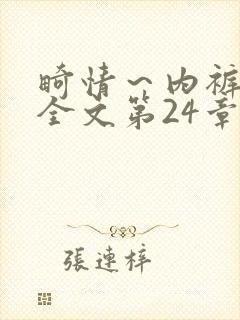 畸情~内裤
全文第24章
張連梓